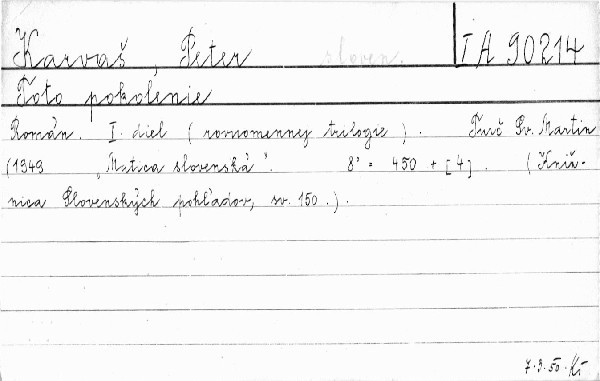 Karvaš, Peter sloven. IA 90214
Toto pokolenie
Román. I. diel (rovnomennej trilogie). Turč Sv. Martin
(1949 „Matica slovenská". 8° = 450 + [4]. (Kniž-
nica Slovenských pohľadov, sv. 150.).
7.3.50. Kr